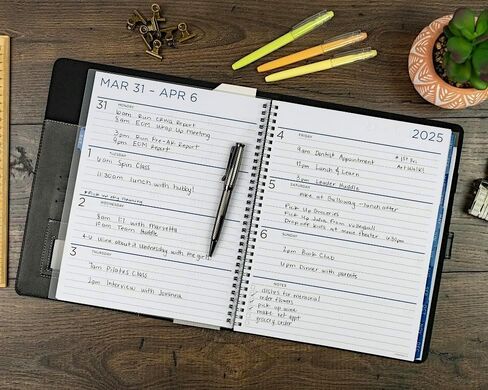 MAR 31 - APR 6
31 MONDAY
8am ECM Wrap Up Meeting
2pm Run Pre-AP Report
3pm ECM Report
1 TUESDAY
9am Spin Class
11:30am lunch with hubby!
2 WEDNESDAY
9am 1:1 with Marsetta
10am Team Huddle
4-6 Wine about it Wednesday with the girls
3 THURSDAY
7am Pilates Class
2pm Interview with Joanna
2025
4 FRIDAY
9am Dentist Appointment
*1st Fri
Art Walk!
12pm Lunch & Learn
3pm Leader Huddle
5 SATURDAY
Hike at Galloway - lunch after
Pick Up Groceries
Pick Up Julia from volleyball
Drop off kids at movie theater 6:30pm
6 SUNDAY
2pm Book Club
6pm Dinner with parents
NOTES
dishes for memorial
order flowers
pick up wine
make vet appt
grocery order